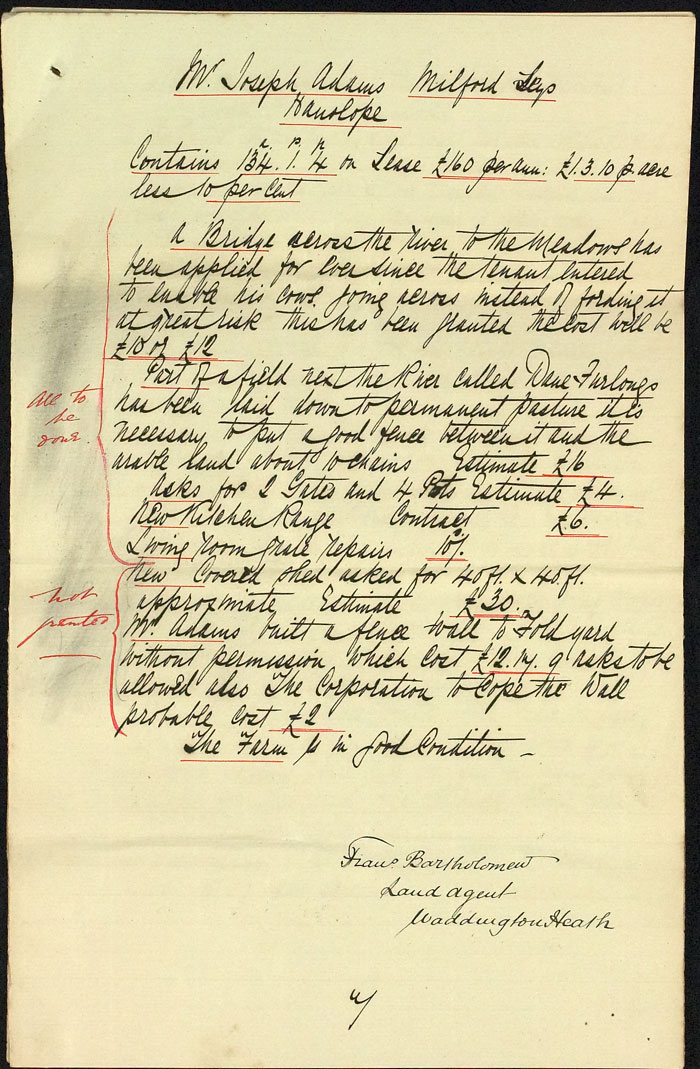 Mr. Joseph Adams Milford Leys
Hanslope
a. p. 
Contains 134. 1. 4 on Lease £160 per ann: £1.3.10 p. acre
less 10 per cent
A Bridge across the River to the Meadows has
been applied for ever since the tenant entered
to enable his cows going across instead of fording it
at great risk this has been granted the cost will be
£10 or £12
Part of a field next the River called Dane Furlongs
has been laid down to permanent pasture it is
necessary to put a good fence between it and the
arable land about 10 chains Estimate £16
asks for 2 Gates and 4 Posts Estimate £4.
New Kitchen Range Contract £6.
Living room grate repairs 10/.
All to
be
done.
New Covered shed asked for 40ft. x 40ft.
approximate Estimate £30.
Mr. Adams built a fence wall to Fold yard
without permission which cost £12.14.9 asks to be
allowed also The Corporation to Cope the Wall
probable cost £2
not
granted
The Farm is in good Condition -
Frans Bartholomew
Land agent
Waddington Heath